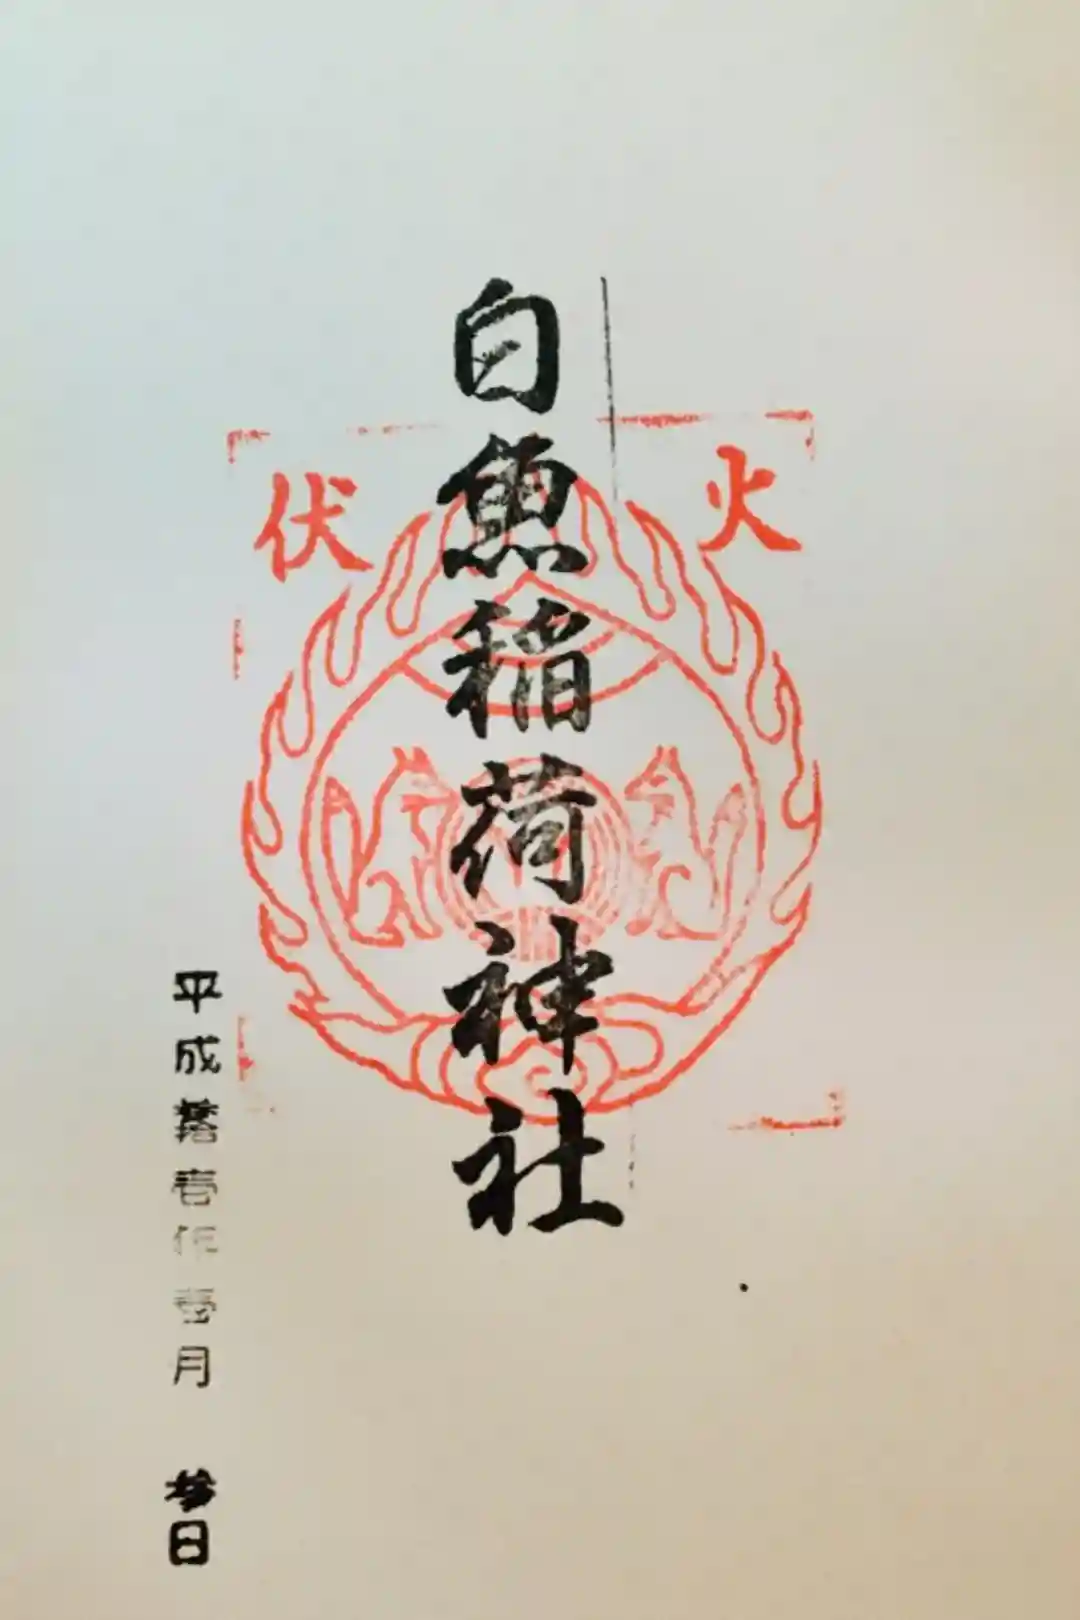 火伏
白魚稲荷神社
平成拾壱年壱月 参日